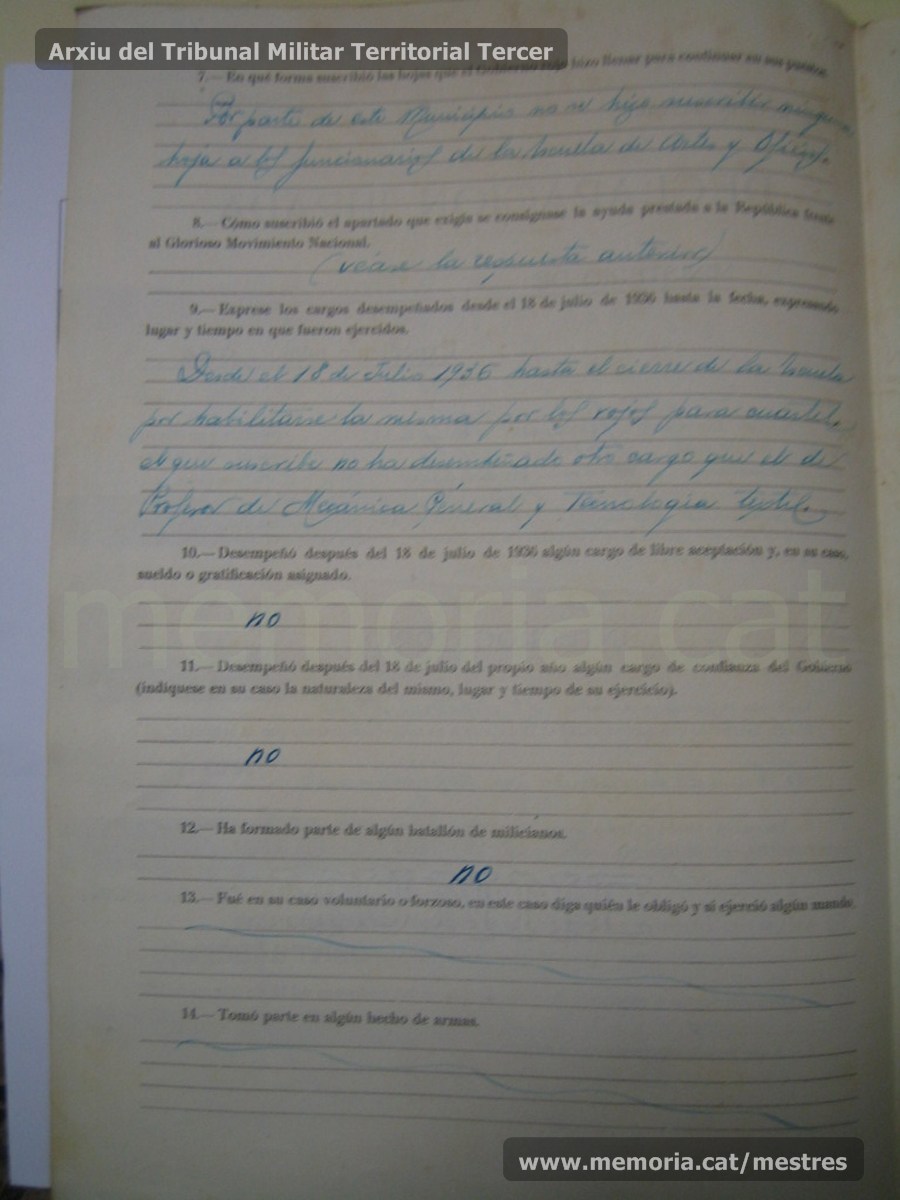 Arxiu del Tribunal Militar Territorial Tercer
7.— En qué forma suscribió las hojas que el Gobierno rojo hizo llenar para continuar en sus puestos.
Por parte de este Municipio no se hizo suscribir ninguna
hoja a los funcionarios de la Escuela de Artes y Oficios.
8.— Cómo suscribió el apartado que exigía se consignase la ayuda prestada a la República frente
al Glorioso Movimiento Nacional.
(véase la respuesta anterior)
9.— Exprese los cargos desempeñados desde el 18 de julio de 1936 hasta la fecha, expresando
lugar y tiempo en que fueron ejercidos.
Desde el 18 de Julio 1936 hasta el cierre de la Escuela
por habilitarse la misma por los rojos para cuartel,
el que suscribe no ha desempeñado otro cargo que el de
Profesor de Mecánica General y Tecnología textil.
10.— Desempeñó después del 18 de julio de 1936 algún cargo de libre aceptación y, en su caso,
sueldo o gratificación asignado.
no
memoria.cat
11.— Desempeñó después del 18 de julio del propio año algún cargo de confianza del Gobierno
(indíquese en su caso la naturaleza del mismo, lugar y tiempo de su ejercicio).
no
12.— Ha formado parte de algún batallón de milicianos.
no
13.— Fué en su caso voluntario o forzoso, en este caso diga quién le obligó y si ejerció algún mando.
14.— Tomó parte en algún hecho de armas.
www.memoria.cat/mestres